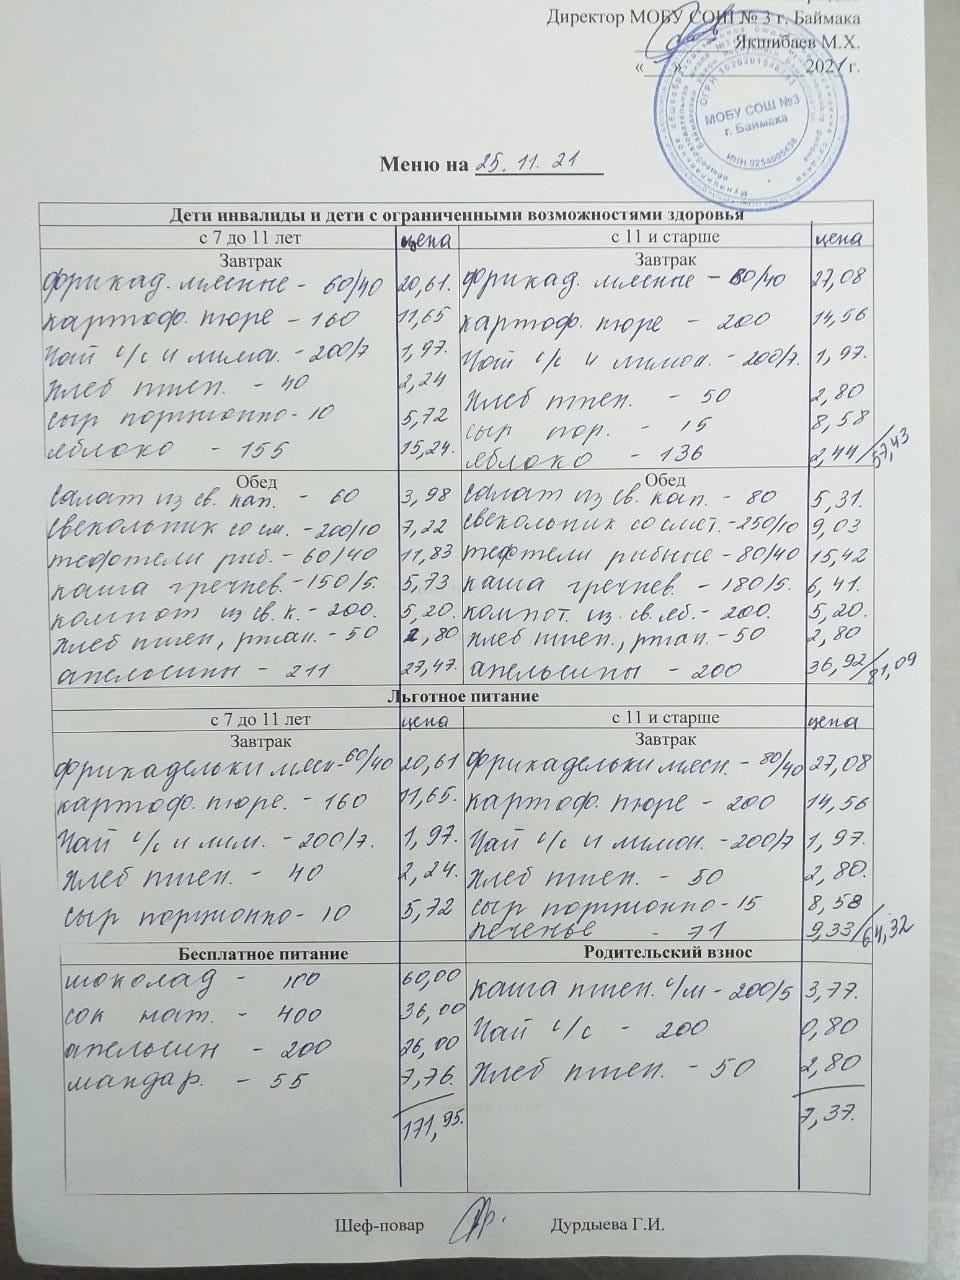 Директор МОБУ СОШ № 3 г. Баймака
Якшибаев М.Х.
« » 2021 г.
МОБУ СОШ №3
г. Баймака
Меню на 25.11.21
Дети инвалиды и дети с ограниченными возможностями здоровья
с 7 до 11 лет цена с 11 и старше цена
Завтрак Завтрак
фрикад. мясные - 60/40 20,61. фрикад. мясные - 80/40 27,08
картоф. пюре - 160 11,65 картоф. пюре - 200 14,56
Чай с/с и лимон. - 200/7 1,97. Чай с/с и лимон. - 200/7. 1,97.
Хлеб пшен. - 40 2,24 Хлеб пшен. - 50 2,80
сыр порционно - 10 5,72 сыр пор. - 15 8,58
яблоко - 155 15,24. яблоко - 136 2,44/57,43
Обед Обед
салат из св. кап. - 60 3,98 салат из св. кап. - 80 5,31.
свекольник со см. - 200/10 7,22 свекольник со смет. - 250/10 9,03
тефтели рыб. - 60/40 11,83 тефтели рыбные - 80/40 15,42
каша гречнев. - 150/5. 5,73 каша гречнев. - 180/5. 6,41.
компот из св. к. - 200. 5,20. компот. из св. яб. - 200. 5,20.
Хлеб пшен, ржан. - 50 2,80 хлеб пшен., ржан. - 50 2,80
апельсины - 211 27,47. апельсины - 200 36,92/81,09
Льготное питание
с 7 до 11 лет цена с 11 и старше цена
Завтрак Завтрак
фрикадельки мясн - 60/40 20,61 фрикадельки мясн. - 80/40 27,08
картоф. пюре. - 160 11,65. картоф. пюре - 200 14,56
Чай с/с и лим. - 200/7. 1,97. Чай с/с и лимон. - 200/7 1,97.
Хлеб пшен. - 40 2,24. Хлеб пшен. - 50 2,80.
сыр порционно - 10 5,72 сыр порционно - 15 8,58
печенье - 71 9,33/64,32
Бесплатное питание Родительский взнос
шоколад - 100 60,00 каша пшен. с/м - 200/5 3,77.
сок нат. - 400 36,00 Чай с/с - 200 0,80
апельсин - 200 26,00 Хлеб пшен. - 50 2,80
мандар. - 55 7,76.
171,95. 7,37.
Шеф-повар Дурдыева Г.И.